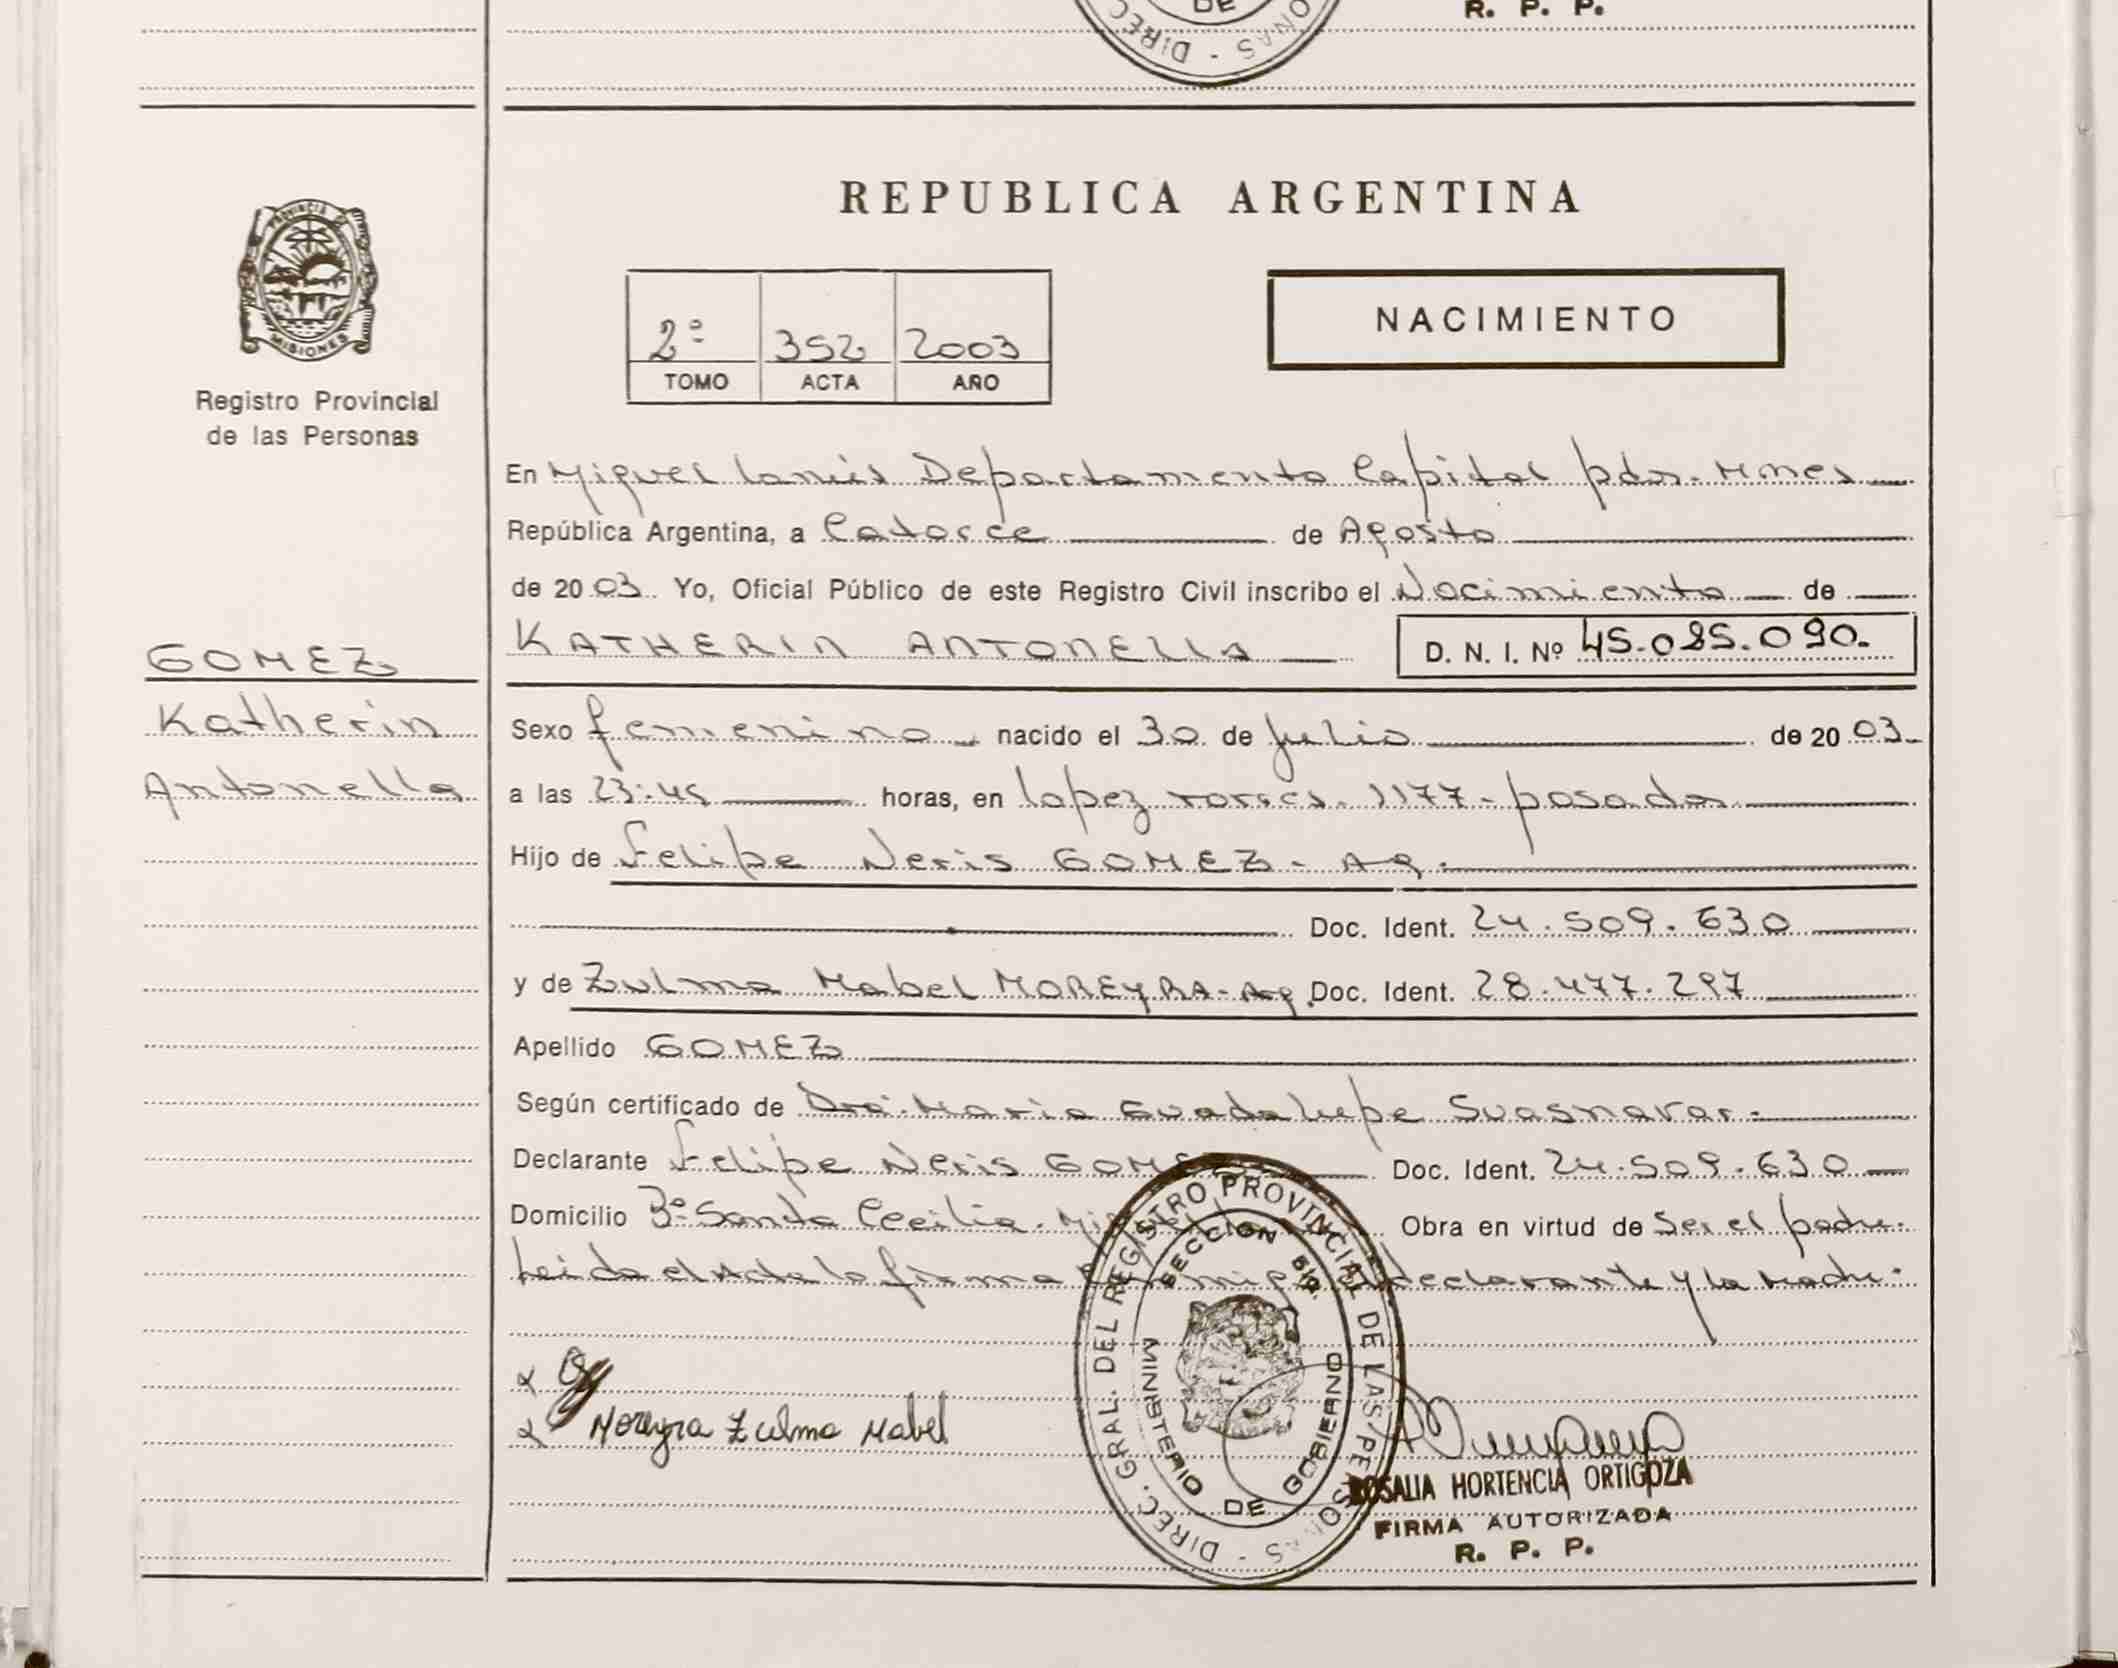 DE
DIREC
ONAS
R. P. P.
PROVINCIA DE
MISIONES
Registro Provincial
de las Personas
REPUBLICA ARGENTINA
2º 352 2003
TOMO ACTA AÑO
NACIMIENTO
En Miguel Lanús Departamento Capital pdas. Mnes
República Argentina, a Catorce de Agosto
de 2003. Yo, Oficial Público de este Registro Civil inscribo el Nacimiento de
KATHERIN ANTONELLA D. N. I. Nº 45.085.090.
GOMEZ
Katherin
Antonella
Sexo femenino nacido el 30 de Julio de 2003
a las 23:45 horas, en Lopez torres. 1177 - posadas
Hijo de Felipe Neris GOMEZ - Ag.
Doc. Ident. 24.509.630
y de Zulma Mabel MOREYRA - Arg. Doc. Ident. 28.477.297
Apellido GOMEZ
Según certificado de Dra. Maria Guadalupe Suasnavar.
Declarante Felipe Neris GOMEZ Doc. Ident. 24.509.630
Domicilio Bº Santa Cecilia. Obra en virtud de Ser el padre.
Leida el Acta la firma declarante y la Madre.
Moreyra Zulma Mabel
DIREC. GRAL. DEL REGISTRO PROVINCIAL DE LAS PERSONAS
SECCION
MINISTERIO DE GOBIERNO
ROSALIA HORTENCIA ORTIGOZA
FIRMA AUTORIZADA
R. P. P.